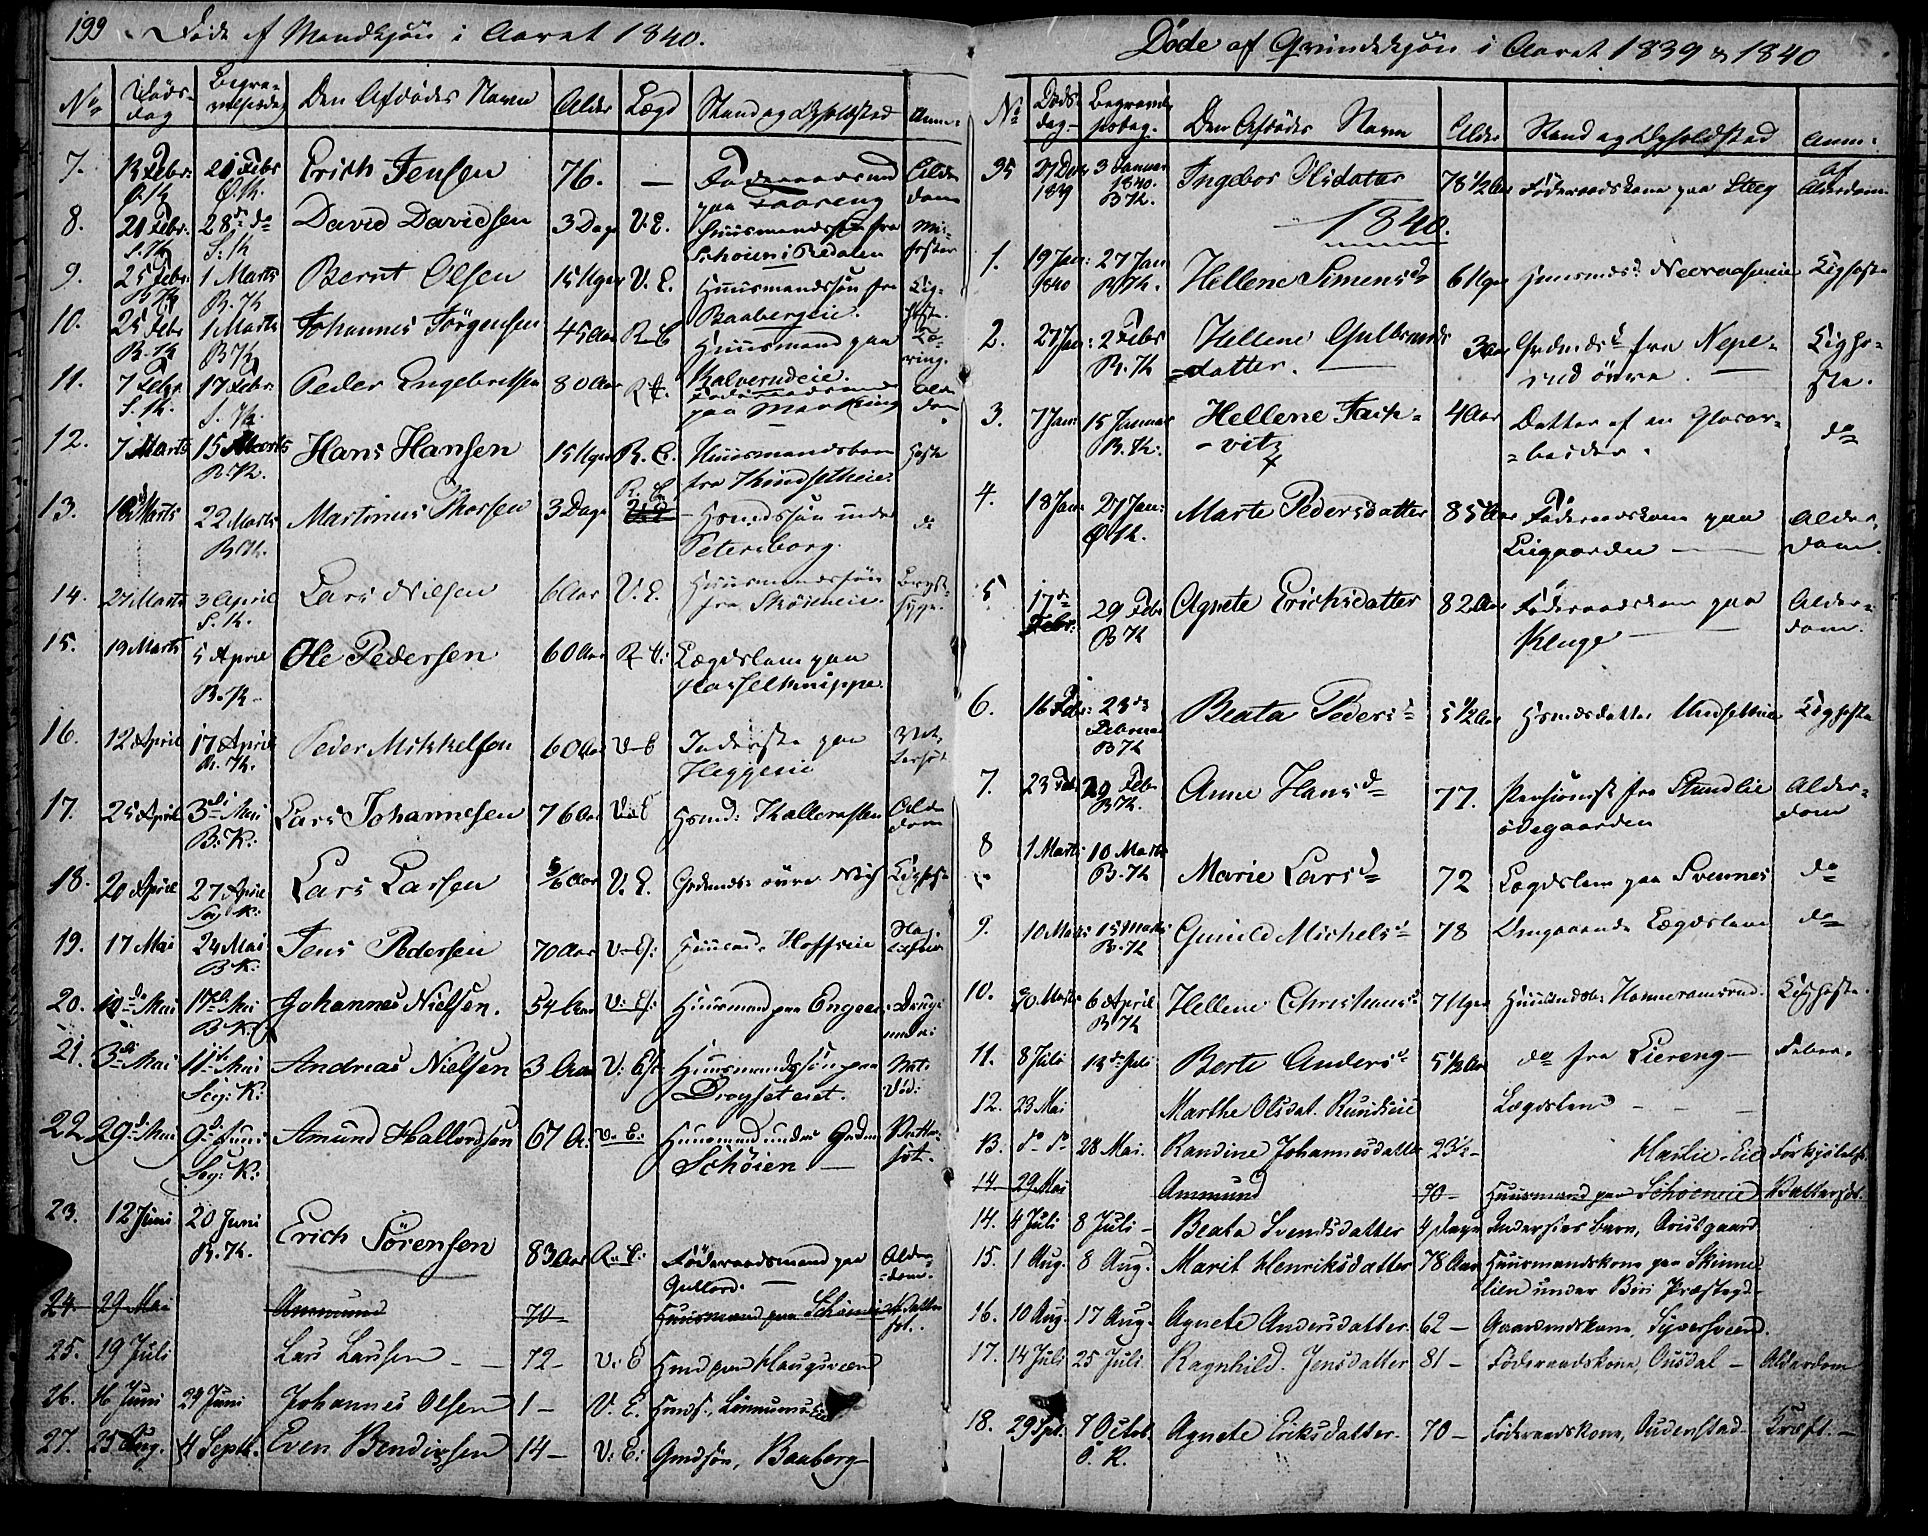 199. Döde af Mandkjön i Aaret 1840.
No Döds-dag Begra-velsesdag Den Afdödes Navn Alder Lægd Stand og Opholdsted Anm:
7. 20 Febr Ö.K. Erich Jensen 76. — Föderaadsmd paa Alderdom
8. 21 Febr. S.K. 28de do S.K. David Davidsen 3 Dage V.E. Huusmandssön fra Schöien i Redalen
9. 25 Febr. B.K. 1 Marts B.K. Bernt Olsen 15 Uger V.E. Huusmandssön fra Baabergeie.
10. 25 Febr B.K. 1 Marts B.K. Johannes Jörgensen 45 Aar R.E. Huusmand paa Kalverudeie. Tæring.
11. 7 Febr. S.K. 17 Febr. S.K. Peder Engebretsen 80 Aar Föderaadsmand paa Alderdom
12. 7 Marts 15 Marts B.K. Hans Hansen 15 Uger R.E. Huusmandsbarn fra Hoste
13. 18 Marts 22 Marts B.K. Martinus Thorsen 3 Dage R.E. Hsmdssön under Petersborg. do
14. 27 Marts 3 April S.K. Lars Nielsen 6 Aar V.E. Huusmandssön fra Sköieneie. Brystsyge.
15. 19 Marts 5 April B.K. Ole Pedersen 60 Aar R.E: Lægdslem paa Hasselknippe.
16. 12 April 17 April B.K. Peder Mikkelsen 60 Aar V.E Inderste paa Heggeeie
17. 25 April 3die Mai B.K. Lars Johannesen 76 Aar V.E Hsmd: Alderdom
18. 20 April 27 April Sög.K: Lars Larsen 5/6 Aar V.E. Grdmds: övre Kighoste
19. 17 Mai 24 Mai B.K: Jens Pedersen 70 Aar V.E: Huusmd. Hoffseie
20. 10de Mai 17de Mai B.K: Johannes Nielsen. 54 Aar V: E: Huusmand paa Engeeie
21. 3die Mai 11te Mai Sög: K: Andreas Nielsen 3 Aar V: E: Huusmandssön paa
22 29de Mai 9de Juni Sög: K: Amund Hallvordsen 67 A: V. E: Huusmand under Grden Schöien — Vattersot.
23. 12 Juni 20 Juni B.K. Erich Sörensen 83 Aar R.E: Föderaadsmand paa Gullord. Alderdom.
24. 29 Mai Ammund 70 Huusmand paa Schöieneie Vattersot.
25. 19 Juli Lars Larsen — 72 — V: E Hmd paa Haugsveen
26. 16 Juni 24 Juni Johannes Olsen 1 — V. E. Hmds.,
27. 25 Aug. 4 Septb. Even Bendixsen 14 — V: E: Gmdsön, Baaberg
Döde af Qvindekjön i Aaret 1839 & 1840
No Döds-dag Begravelsesdag. Den Afdödes Navn Alder Stand og Opholdsted Anm:
35 27 Decr 1839 3 Januar 1840. B.K. Ingebor Olsdatter 78 1/2 Aar Föderaadskone paa Steeg af Alderdom
1840.
1. 19 Jan: 1840 27 Jan B.K. Hellene Simensd 6 Uger Kighoste
2. 27 Jan: 2 Febr B.K. Hellene Gulbrands-datter. 3 Aar Grdmdsd fra Neperud övre Kighoste.
3. 7 Jan: 15 Januar B.K. Hellene Jack-vitz 4 Aar Datter af en Glasarbeider. do
4. 18 Jan: 27 Jan: Ö.K. Marte Pedersdatter 85 Aar Föderaadskone paa Liigaarden — Alderdom.
5 17de Febr: 29 Febr B.K Agnete Erichsdatter 82 Aar Föderaadskone paa Kluge — Alderdom.
6. 16 Febr: 23de Februar B.K Beata Pedersd 5 1/2 Aar Hsmdsdatter Kighoste
7. 23 Feb. 29 Feb B.K. Anne Hansd 77. Pensionist fra ödegaarden Alderdom
8 1 Marts 10 Marts B.K Marie Larsd 72 Lægdslem paa Svennes do
9. 10 Marts 15 Marts B.K Gunild Michelsd 78 Omgaaende Lægdslem do
10. 30 Marts 6 April B.K Hellene Christiansd 7 Uger Kighoste.
11. 8 Juli 13de Juli Berte Andersd 5 1/2 Aar do fra Liereng — Feber.
12. 23 Mai Marthe Olsdat. Rundseie Lægdslem — — —
13. do do 28 Mai. Randine Johannesdatter 23 1/2 — Haslie-Eie Forkjölelse.
14. 29 Mai Ammund 70 — Huusmand paa Schöieneie Vattersot.
14. 4 Juli 8 Juli — Beata Svendsdatter 4 Dage Inderstes barn,
15. 1 Aug. 8 Aug. Marit Henriksdatter 78 Aar Huusmandskone paa Skinnerlien under Biri Præstegd.
16. 10 Aug. 17 Aug. Agnete Andersdatter 62 — Gaardmdskone, Syversveen.
17. 14 Juli 25 Juli Ragnhild. Jensdatter 81 — Föderaadskone, Onsdal — Alderdom
18. 29 Spt. 7 Octob. Ö.K. Agnete Eriksdatter. 70 — Föderaadskone, Audenstad Kræft. —